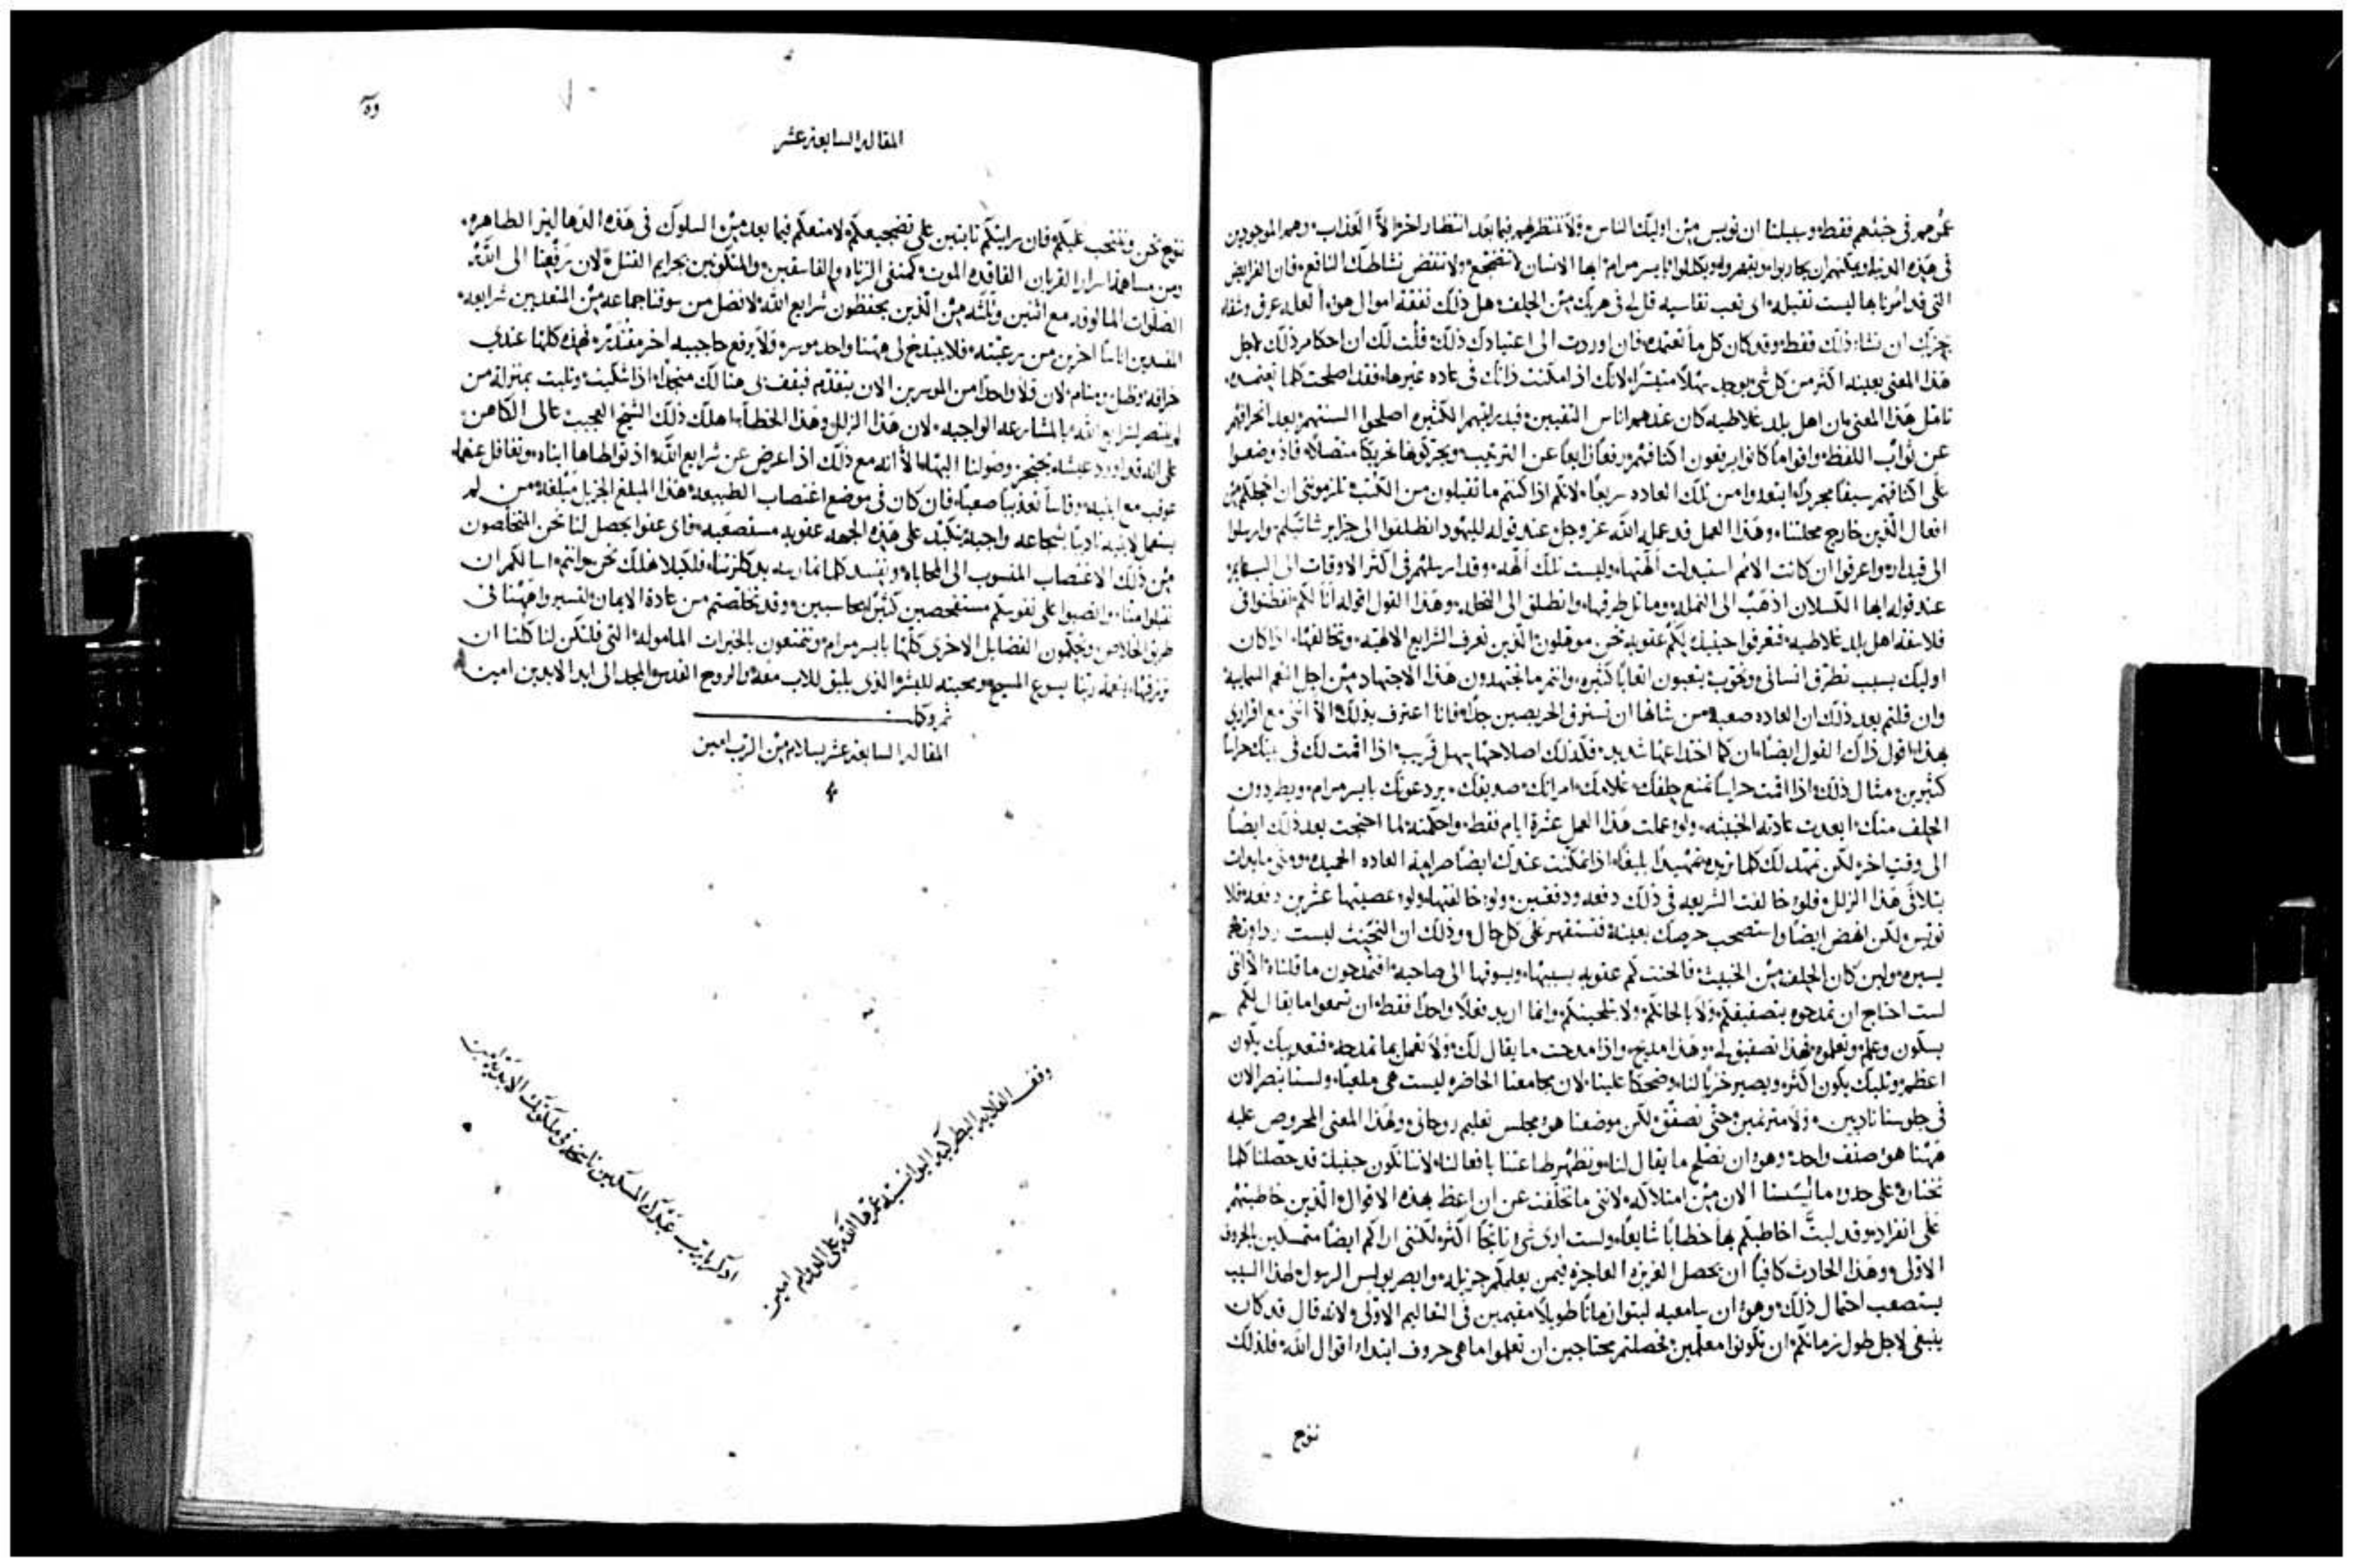 عمرهم في خبثهم فقط وسبيلنا ان نويس من اوليك الناس ولا ننتظر لهم فيما بعد انتظار اخر الا العذاب وهم الموجودين
في هذه الدنيا ويمكنهم ان يحاربوا ويقهروا ويكللوا بايسر مرام ايها الانسان لا تتضجع ولا تنقض نشاطك النافع فان الفرايض
التي قد امرنا بها ليست ثقيله اي تعب تقاسيه قل لي في هربك من الحلف هل ذلك نفقة اموال هو العله عرق وشقا
يجزيك ان تشا ذلك فقط وقد كان كل ما تعتمده فان اوردت الي اعتيادك ذلك قلت لك ان احكام ذلك لاجل
هذا المعنى بعينه اكثر من كل شي يوجد سهلا متيسرا لانك اذا مكنت ذاتك في عاده غيرها فقد اصلحت كلما تعتمده
تامل هذا المعنى ان اهل بلد غلاطيه كان عندهم اناس التفيين قيد رايتهم الكثيره اصلحوا السنتهم بعد انحرافهم
عن ثواب اللفظ واقواما كانوا يرفعون اكتافهم رفعا زايغا عن الترتيب ويحركوها تحريكا متصلا فاذ وضعوا
على اكتافهم سيفا مجردا ابتعدوا من تلك العاده سريعا لانكم اذا كنتم ما تقبلون من الكتب تلزموني ان اخجلكم من
افعال الذين خارج محلتنا وهذا العمل قد عمله الله عز وجل عند قوله لليهود انطلقوا الى جزاير شاتيلم وارسلوا
الى قيدار واعرفوا ان كانت الامم استبدلت الهتها وليست تلك الهه وقد ارسلهم في اكثر الاوقات الى البهايم
عند قوله ايها الكسلان اذهب الى النمله وماثل طرقها وانطلق الى النحله وهذا القول اقوله انا لكم تفطنوا في
فلاسفة اهل بلد غلاطيه فتعرفوا حينيذ لكم عقوبه نحن موهلون الذين نعرف الشرايع الالهيه ونخالفها اذا كان
اوليك بسبب تطرق انساني وتحوب يتعبون اتعابا كثيره وانتم ما تجتهدون هذا الاجتهاد من اجل النعم السماييه
وان قلتم بعد ذلك ان العاده صعبه من شانها ان تسترق الحريصين جدا فانا اعترف بذلك الا انني مع اقراري
بهذا اقول ذلك القول ايضا ان كما اخذاعها شديد فكذلك اصلاحها سهل قريب اذا اقمت لك في بيتك حراسا
كثيرين مثال ذلك اذا اقمت حراسا تمنع حلفك غلامك امراتك صديقك يردعونك بايسر مرام ويطردون
الحلف منك ابعدت عادته الخبيثه ولو عملت هذا العمل عشرة ايام فقط واحكمته لما احتجت بعد ذلك ايضا
الى وقت اخر لكن تمهد لك كلما تريده تمهيدا بليغا اذا تمكنت عندك ايضا صرامة العاده الحميده ومتى ما بدات
بتلافي هذا الزلل فلو خالفت الشريعه في ذلك دفعه ودفعتين ولو خالفتها ولو عصيتها عشرين دفعه فلا
تويس لكن انهض ايضا واستصحب حرصك بعينه فستقهر على كل حال وذلك ان التحنيث ليست رداوته
يسيره ولين كان الحلف من الخبيث فالحنث كم عقوبه بسببها ويسوقها الى صاحبه افتمدحون ما قلناه الا انني
لست احتاج ان تمدحوه بتصفيقكم ولا بالحانكم ولا بتلحينكم وانما اريد فعلا واحدا فقط ان تسمعوا ما يقال لكم
بسكون وعلم وتعلموه فهذا تصفيق لي وهذا مديح واذا مدحت ما يقال لك ولا تعمل بما تمدحه فتعذيبك يكون
اعظم وثلبك يكون اكثر ويصير خزيا لنا وضحكا علينا لان مجامعنا الحاضره ليست هي ملعبا ولسنا بنصر الان
في جلوسنا ناديين ولا مترنمين حتى نصفق لكن موضعنا هو مجلس تعليم روحاني ولهذا المعنى المحروص عليه
ههنا هو صنف واحد وهو ان نصلح ما يقال لنا ونظهر طاعتنا بافعالنا لاننا نكون حينيذ قد حصلنا كلما
نختاره على حدود ما يسسنا الان من امتلاكه لانني ما تخلفت عن ان اعظ بهذه الاقوال الذين خاطبتهم
على انفراد وقد لبثت اخاطبكم بها خطابا شايعا ولست ارى شي ناتجا اكثر لكنني اراكم ايضا متمسكين بالحروف
الاولى وهذا الحادث كافيا ان يحصل الغريزه العاجزه فيمن يعلمكم جزيله وابصر بولس الرسول لهذا السبب
يستصعب احتمال ذلك وهو ان سامعيه لبثوا زمانا طويلا مقيمين في التعاليم الاولى لانه قال قد كان
ينبغي لاجل طول زمانكم ان تكونوا معلمين فحصلتم محتاجين ان تعلموا ما هي حروف ابتدا اقوال الله فلذلك
ننوح
المقاله السابعه عشر
ننوح نحن وننتحب عليكم فان رايتكم ثابتين على تضجيعكم لامنعكم فيما بعد من السلوك في هذه الدهاليز الطاهره
ومن مساهمة اسرار القربان الفاقده الموت كمنفى الزناه والفاسقين والمتكونين بجرايم القتل لان ترفيعنا الى الله
الصلوات المالوفه مع اثنين وثلثه من الذين يحفظون شرايع الله لافضل من سوقنا جماعه من المتعديين شرايعه
المفسدين اناسا اخرين من رعيته فلا يبذخ لي ههنا واحد موسر ولا يرفع حاجبيه اخر مقتدر فهذه كلها عندي
خرافه وظل ومنام لان ولا واحدا من الموسرين الان يتقدم فيقف لي هنالك منجدا اذا شكيت وثلبت بمنزلة من
لم ينتصر لشرايع الله بالمشارعه الواجبه لان هذا الزلل وهذا الخطا اهلك ذلك الشيخ العجيب عالي الكاهن
على انه قد اورد عيشه تحتج وصولنا اليها الا انه مع ذلك اذ اعرض عن شرايع الله اذ توطاها ابناه وتغافل عنهما
عوقب مع ابنيه وقاسا تعذيبا صعبا فان كان في موضع اغتصاب الطبيعه هذا المبلغ الجزيل مبلغه من لم
يستعمل لابنيه تاديبا بشجاعه واجبه نكب على هذه الجهه عقوبه مستصعبه فاي عفوا يحصل لنا نحن المتخلصون
من ذلك الاغتصاب المنسوب الى المحاباه ونفسد كلما نمارسه بدكلزتنا فلكيلا نهلك نحن وانتم اسالكم ان
تقبلوا منا وانصبوا على نفوسكم مستفحصين كثيرا محاسبين وقد تخلصتم من عادة الايمان لتسيروا ههنا في
طريق الخلاص وتحكمون الفضايل الاخرى كلها بايسر مرام وتتمتعون بالخيرات الماموله التي فلتكن لنا كلنا ان
نرزقها بنعمة ربنا يسوع المسيح ومحبته للبشر الذي يليق للاب معه والروح القدس المجد الى ابد الابدين امين
تم وكلت
المقاله السابعه عشر بسلام من الرب امين
وقف القلايه البطركيه اليوانسيه عمرها الله على الدوام امين
ادكر يارب عبدك المسكين ناسخه في ملكوتك الابديه امين